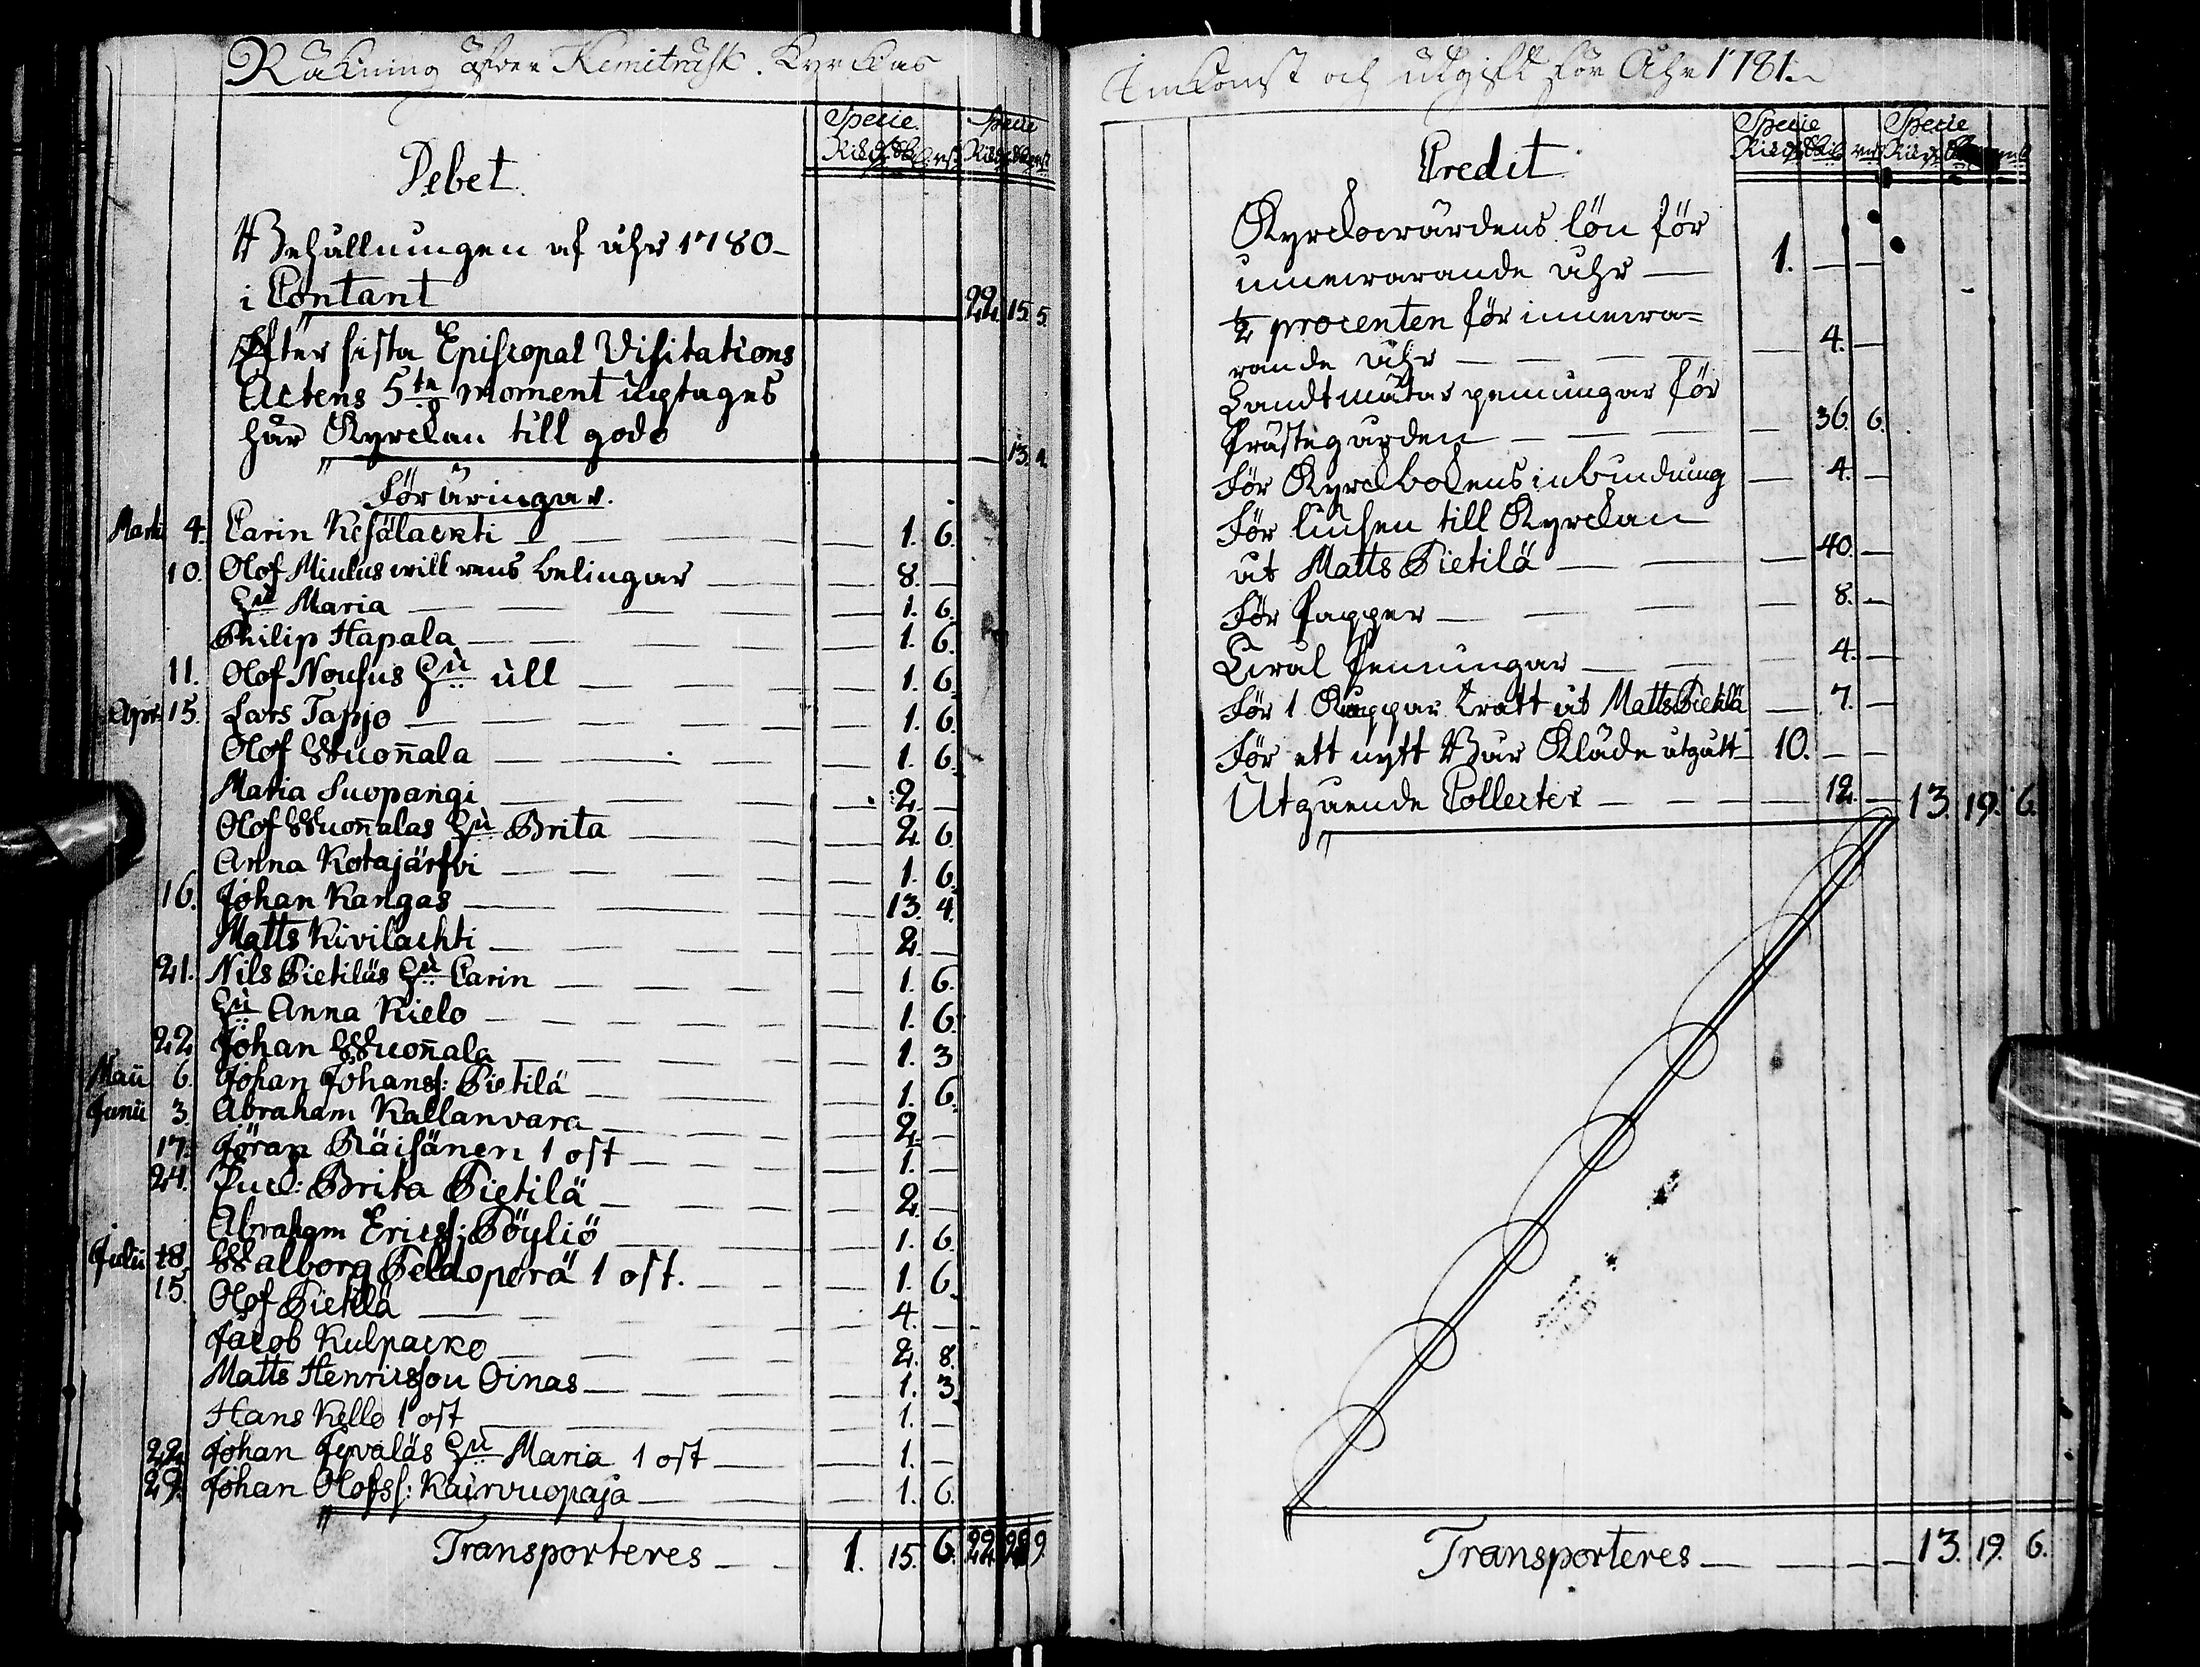 Räkning öfver Kemiträsk Kyrckas
Debet.
Specie Riksd. Sk. rst. Specie Riksd. Sk. rst.
Behållningen af åhr 1780 –
i Contant 22. 15. 5.
Efter sista Episcopal Visitations
Actens 5te moment uptages
här Kyrckan till godo — 13. 4.
Föräringar.
Martii 4. Carin Kesälackti — 1. 6.
10. Olof — belingar — 8. —
Hu Maria — 1. 6.
Philip Hapala — 1. 6.
11. Olof Nousus Hu ull — 1. 6.
Apr. 15. Lars Tapjo — 1. 6.
Olof Wuoñala — 1. 6.
Maria Suopangi — 2. —
Olof Wuoñalas Hu Brita — 2. 6.
Anna Kotajärfvi — 1. 6.
16. Johan Kangas — 13. 4.
Matts Kivilachti — 2. —
21. Nils Pietiläs Hu Carin — 1. 6.
Hu Anna Kielo — 1. 6.
22. Johan Wuoñala — 1. 3
Maii 6. Johan Johanss: Pietilä — 1. 6.
Junii 3. Abraham Kallanvara — 2. —
17. Jöran Räisänen 1 ost — 1. —
24. Brita Pietilä — 2. —
Abraham Ericss: Pöyliö — 1. 6.
Julii 8. Walborg Peldoperä 1 ost. — 1. 6.
15. Olof Pietilä — 4. —
Jacob Kulpacko — 2. 8.
Matts Henricsson Oinas — 1. 3
Hans Kello 1 ost — 1. —
22. Johan Jyväläs Hu Maria 1 ost — 1. —
29. Johan Olofss: Kairivuopaja — 1. 6.
Transporteres — 1. 15. 6. 22. 28 9.
Inkomst och utgift för Åhr 1781.
Credit
Specie Riksd. Sk. rst. Specie Riksd.
Kyrckowärdens lön för
innewarande åhr — 1. — —
½ procenten för innewa=
rande åhr — 4. —
Landtmätar penningar för
Prästegården — 36. 6.
För Kyrckbokens inbindning — 4. —
För linsen till Kyrckan
åt Matts Pietilä — 40. —
För Papper — 8. —
Penningar — 4. —
För 1 Koppar tratt åt Matts Pietilä — 7. —
För ett nytt Bår Kläde utgått 10. — —
Utgående Collecter — 12. — 13. 19. 6.
Transporteres — 13. 19. 6.